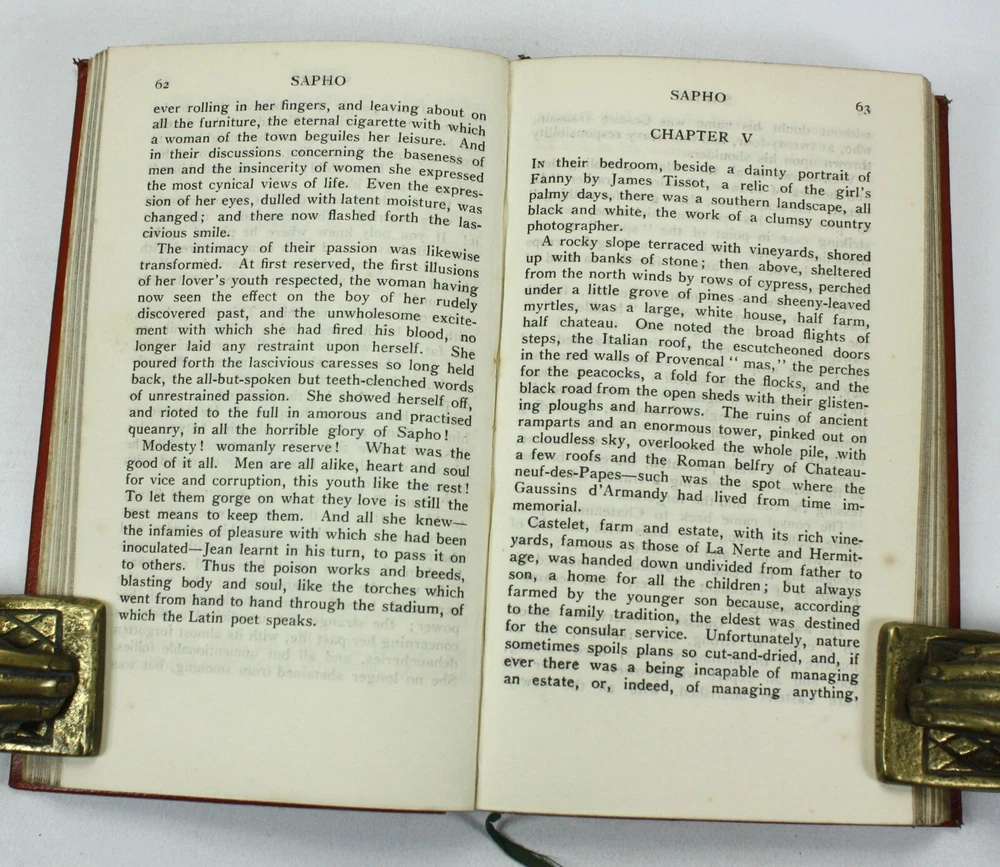 62
SAPHO
ever rolling in her fingers, and leaving about on
all the furniture, the eternal cigarette with which
a woman of the town beguiles her leisure. And
in their discussions concerning the baseness of
men and the insincerity of women she expressed
the most cynical views of life. Even the expres-
sion of her eyes, dulled with latent moisture, was
changed; and there now flashed forth the las-
civious smile.
The intimacy of their passion was likewise
transformed. At first reserved, the first illusions
of her lover's youth respected, the woman having
now seen the effect on the boy of her rudely
discovered past, and the unwholesome excite-
ment with which she had fired his blood, no
longer laid any restraint upon herself. She
poured forth the lascivious caresses so long held
back, the all-but-spoken but teeth-clenched words
of unrestrained passion. She showed herself off,
and rioted to the full in amorous and practised
queanry, in all the horrible glory of Sapho!
Modesty! womanly reserve! What was the
good of it all. Men are all alike, heart and soul
for vice and corruption, this youth like the rest!
To let them gorge on what they love is still the
best means to keep them. And all she knew—
the infamies of pleasure with which she had been
inoculated—Jean learnt in his turn, to pass it on
to others. Thus the poison works and breeds,
blasting body and soul, like the torches which
went from hand to hand through the stadium, of
which the Latin poet speaks.
SAPHO
63
CHAPTER V
In their bedroom, beside a dainty portrait of
Fanny by James Tissot, a relic of the girl's
palmy days, there was a southern landscape, all
black and white, the work of a clumsy country
photographer.
A rocky slope terraced with vineyards, shored
up with banks of stone; then above, sheltered
from the north winds by rows of cypress, perched
under a little grove of pines and sheeny-leaved
myrtles, was a large, white house, half farm,
half chateau. One noted the broad flights of
steps, the Italian roof, the escutcheoned doors
in the red walls of Provencal "mas," the perches
for the peacocks, a fold for the flocks, and the
black road from the open sheds with their glisten-
ing ploughs and harrows. The ruins of ancient
ramparts and an enormous tower, pinked out on
a cloudless sky, overlooked the whole pile, with
a few roofs and the Roman belfry of Chateau-
neuf-des-Papes—such was the spot where the
Gaussins d'Armandy had lived from time im-
memorial.
Castelet, farm and estate, with its rich vine-
yards, famous as those of La Nerte and Hermit-
age, was handed down undivided from father to
son, a home for all the children; but always
farmed by the younger son because, according
to the family tradition, the eldest was destined
for the consular service. Unfortunately, nature
sometimes spoils plans so cut-and-dried, and, if
ever there was a being incapable of managing
an estate, or, indeed, of managing anything,